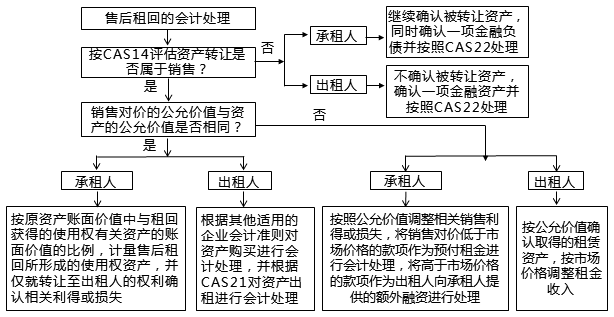 售后租回的会计处理
按CAS14评估资产转让是
否属于销售？
否
承租人
继续确认被转让资产，
同时确认一项金融负
债并按照CAS22处理
出租人
不确认被转让资产，
确认一项金融资产并
按照CAS22处理
是
销售对价的公允价值与资
产的公允价值是否相同？
否
是
承租人
出租人
承租人
出租人
按原资产账面价值中与租回
获得的使用权有关资产的账
面价值的比例，计量售后租
回所形成的使用权资产，并
仅就转让至出租人的权利确
认相关利得或损失
根据其他适用的
企业会计准则对
资产购买进行会
计处理，并根据
CAS21对资产出
租进行会计处理
按照公允价值调整相关销售利
得或损失，将销售对价低于市
场价格的款项作为预付租金进
行会计处理，将高于市场价格
的款项作为出租人向承租人提
供的额外融资进行处理
按公允价值确
认取得的租赁
资产，按市场
价格调整租金
收入